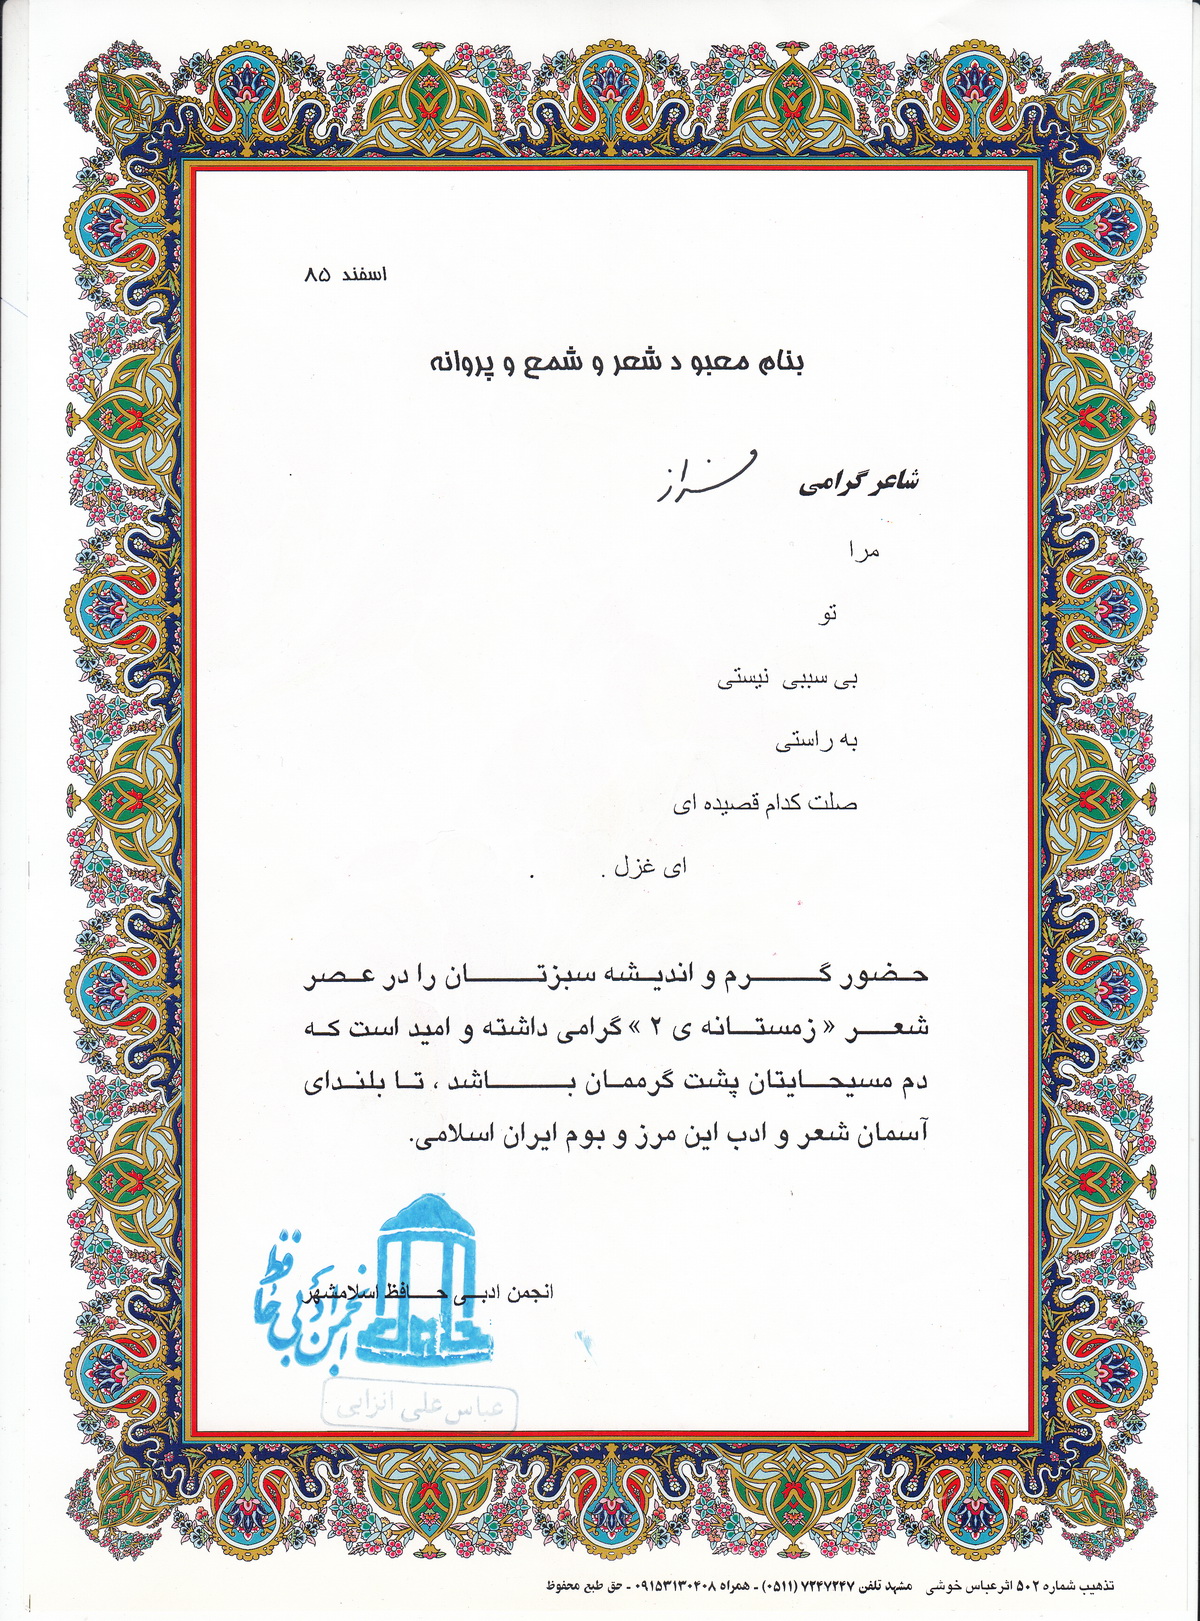 اسفند ۸۵
بنام معبود شعر و شمع و پروانه
شاعر گرامی فراز
مرا
تو
بی سببی نیستی
به راستی
صلت کدام قصیده ای
ای غزل .
حضور گرم و اندیشه سبزتان را در عصر
شعر « زمستانه ی ۲ » گرامی داشته و امید است که
دم مسیحایتان پشت گرممان باشد ، تا بلندای
آسمان شعر و ادب این مرز و بوم ایران اسلامی.
انجمن ادبی حافظ اسلامشهر
انجمن ادبی حافظ
عباس علی انزابی
تذهیب شماره ۵۰۲ اثر عباس خوشی مشهد تلفن ۷۲۴۷۲۴۷ (۰۵۱۱) - همراه ۰۹۱۵۳۱۳۰۴۰۸ - حق طبع محفوظ